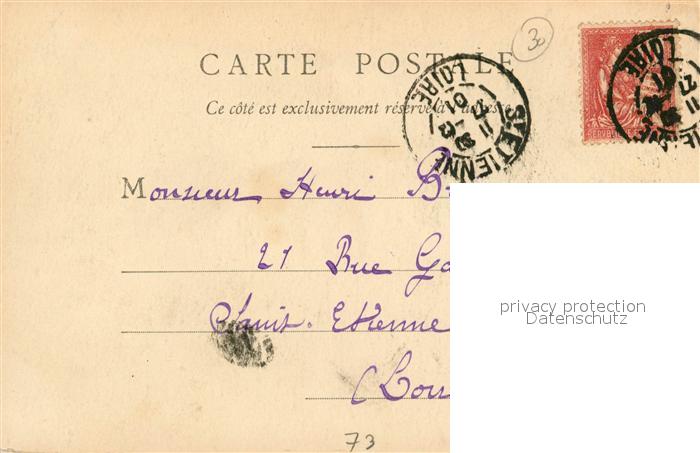 30
CARTE POSTALE
Ce côté est exclusivement réservé à l'adresse
ST ETIENNE
LOIRE
01
LOIRE
Monsieur Henri B
21 Rue Ga
Saint-Etienne
(Loir
73
privacy protection
Datenschutz